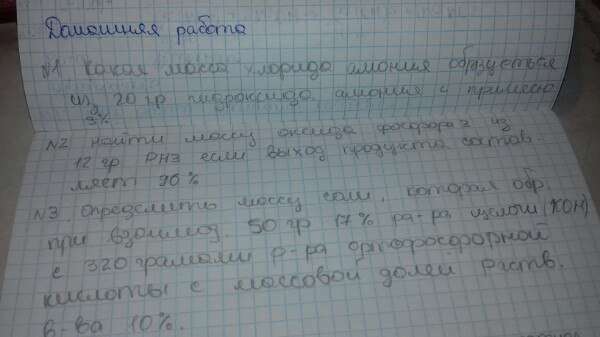 Домашняя работа
N1 Какая масса хлорида амония образуеться
из 20 гр гидроксида амония с примесью
3%
N2 Найти массу оксида фосфора 2 из
12 гр PH3 если выход продукта состав-
ляет 96%
N3 Определить массу соли, которая обр.
при взаимод. 50 гр 17% ра-ра щелочи (KOH)
с 320 грамами р-ра ортофосфорной
кислоты с массовой долей раств.
в-ва 10%.